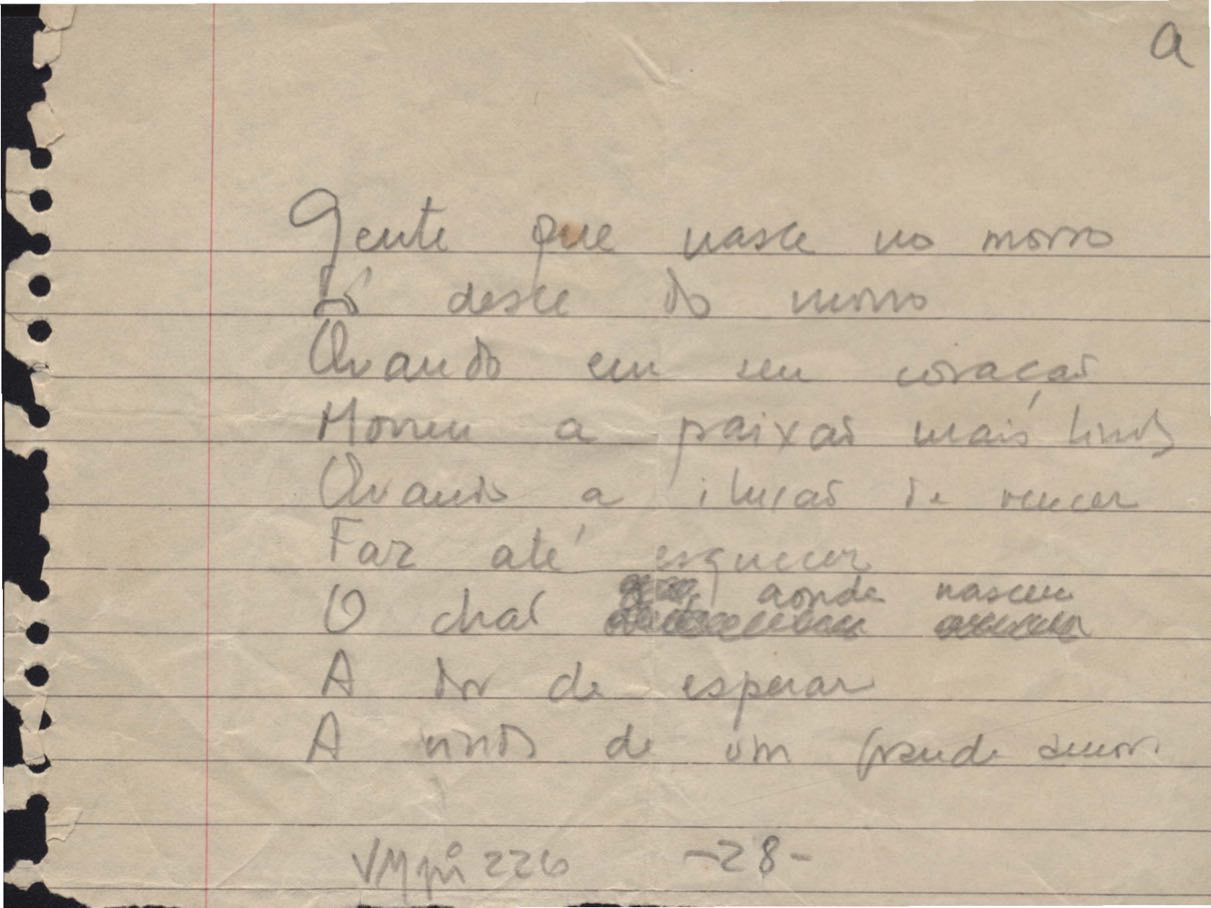 a
Gente que nasce no morro
Só desce do morro
Quando em seu coração
Morreu a paixão mais linda
Quando a ilusão de vencer
Faz até esquecer
aonde nasceu
O chão
A dor de esperar
A vinda de um grande amor
VMpi 226 -28-